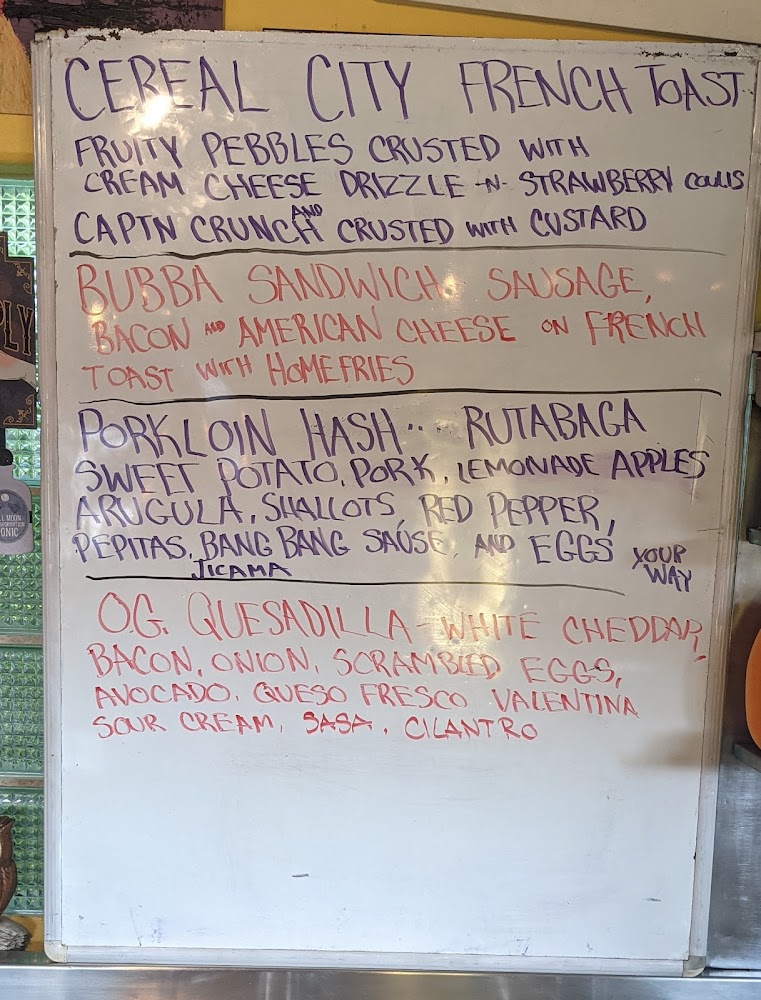 CEREAL CITY FRENCH TOAST
FRUITY PEBBLES CRUSTED WITH
CREAM CHEESE DRIZZLE -N- STRAWBERRY COULIS
CAPTN CRUNCH AND CRUSTED WITH CUSTARD
BUBBA SANDWICH. SAUSAGE,
BACON AND AMERICAN CHEESE ON FRENCH
TOAST WITH HOMEFRIES
PORK LOIN HASH.. RUTABAGA
SWEET POTATO, PORK, LEMONADE APPLES
ARUGULA, SHALLOTS, RED PEPPER,
PEPITAS, BANG BANG SAUSE, AND EGGS YOUR WAY
JICAMA
O.G. QUESADILLA - WHITE CHEDDAR,
BACON, ONION, SCRAMBLED EGGS,
AVOCADO, QUESO FRESCO VALENTINA
SOUR CREAM, SASA, CILANTRO
PLY
MOON
ONIC